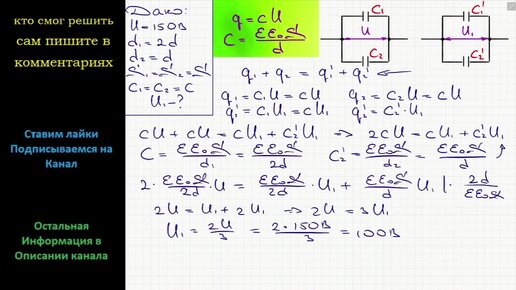 кто смог решить
сам пишите в
комментариях
Ставим лайки
Подписываемся на
Канал
Остальная
Информация в
Описании канала
Дано:
U = 150В
d₁ = 2d
d₂ = d
C₁ = C₂ = C
U₁ - ?
q = cU
C = εε₀S/d
C₁
U
C₂
C₁'
U₁
C₂'
q₁ + q₂ = q₁' + q₂'
q₁ = C₁U = cU q₂ = C₂U = cU
q₁' = C₁U₁ = cU₁ q₂' = C₂'·U₁
cU + cU = cU₁ + C₂'U₁ ⇒ 2cU = cU₁ + C₂'U₁
C = εε₀S/d₁ = εε₀S/2d C₂' = εε₀S/d₂ = εε₀S/d
2·εε₀S/2d·U = εε₀S/2d·U₁ + εε₀S/d U₁ |·2d/εε₀S
2U = U₁ + 2U₁ ⇒ 2U = 3U₁
U₁ = 2U/3 = 2·150В/3 = 100В